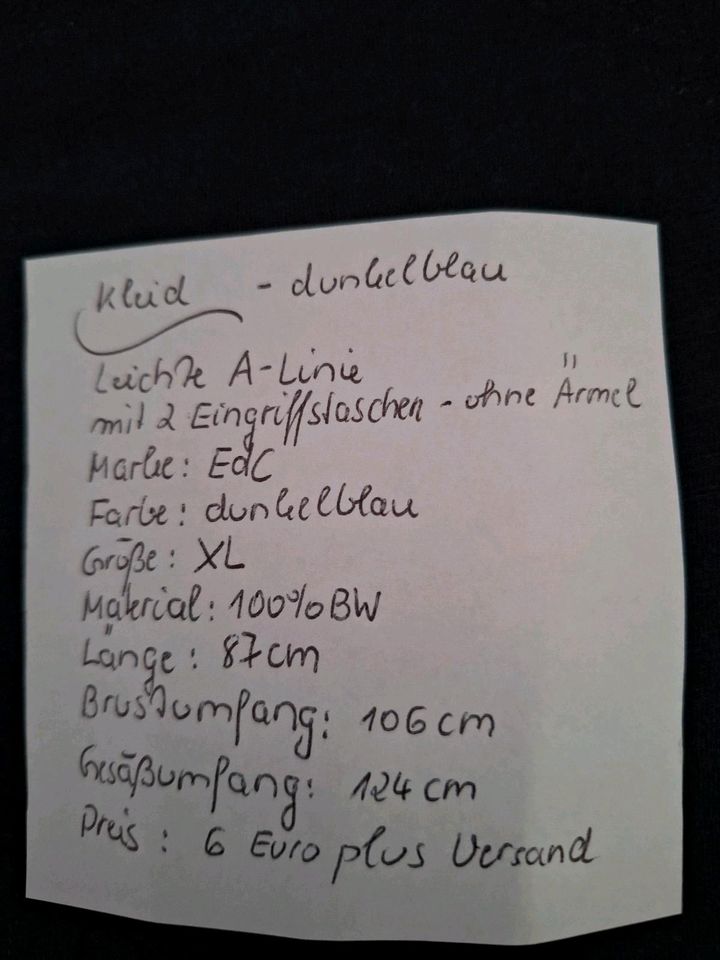 Kleid - dunkelblau
Leichte A-Linie
mit 2 Eingriffstaschen - ohne Ärmel
Marke: EdC
Farbe: dunkelblau
Größe: XL
Material: 100% BW
Länge: 87cm
Brustumfang: 106 cm
Gesäßumfang: 124 cm
Preis: 6 Euro plus Versand